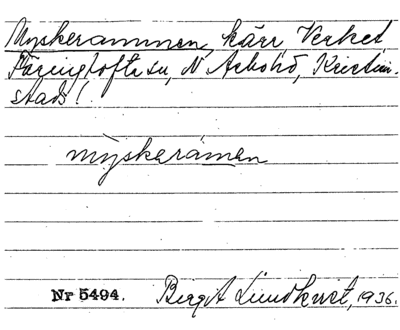 Myskerammen, kärr Verket
Färingtofta sn, N Åsbohd, Kristian-
stads l.
myskerámen
Nr 5494. Bergit Lundkvist, 1936.